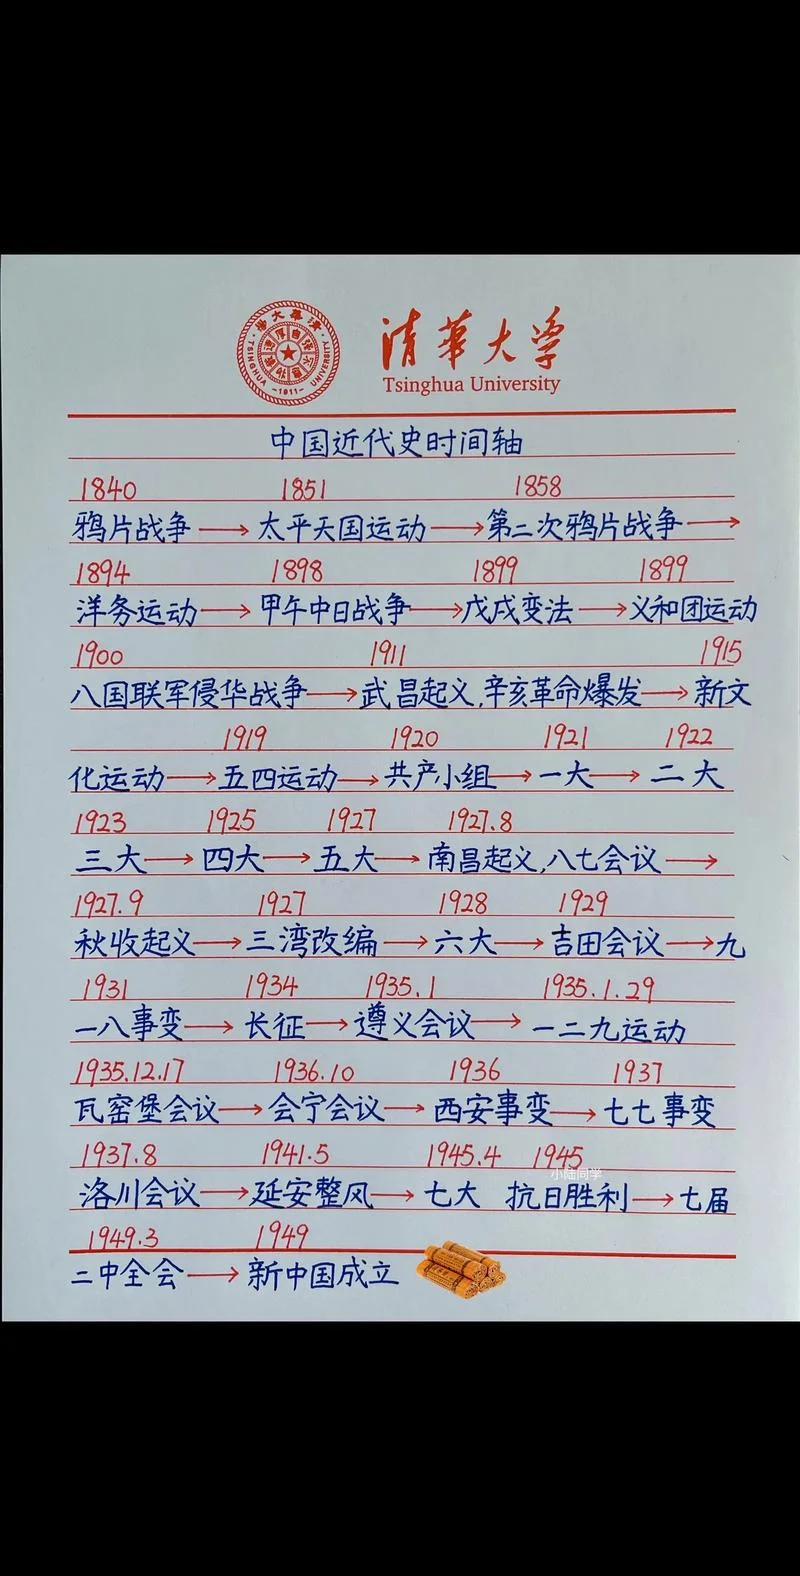 清華大学
Tsinghua University
TSINGHUA UNIVERSITY
-1911-
中国近代史时间轴
1840 1851 1858
鸦片战争→太平天国运动→第二次鸦片战争→
1894 1898 1899 1899
洋务运动→甲午中日战争→戊戌变法→义和团运动
1900 1911 1915
八国联军侵华战争→武昌起义,辛亥革命爆发→新文
1919 1920 1921 1922
化运动→五四运动→共产小组→一大→二大
1923 1925 1927 1927.8
三大→四大→五大→南昌起义,八七会议→
1927.9 1927 1928 1929
秋收起义→三湾改编→六大→吉田会议→九
1931 1934 1935.1 1935.1.29
一八事变→长征→遵义会议→一二九运动
1935.12.17 1936.10 1936 1937
瓦窑堡会议→会宁会议→西安事变→七七事变
1937.8 1941.5 1945.4 1945
小陆同学
洛川会议→延安整风→七大 抗日胜利→七届
1949.3 1949
二中全会→新中国成立